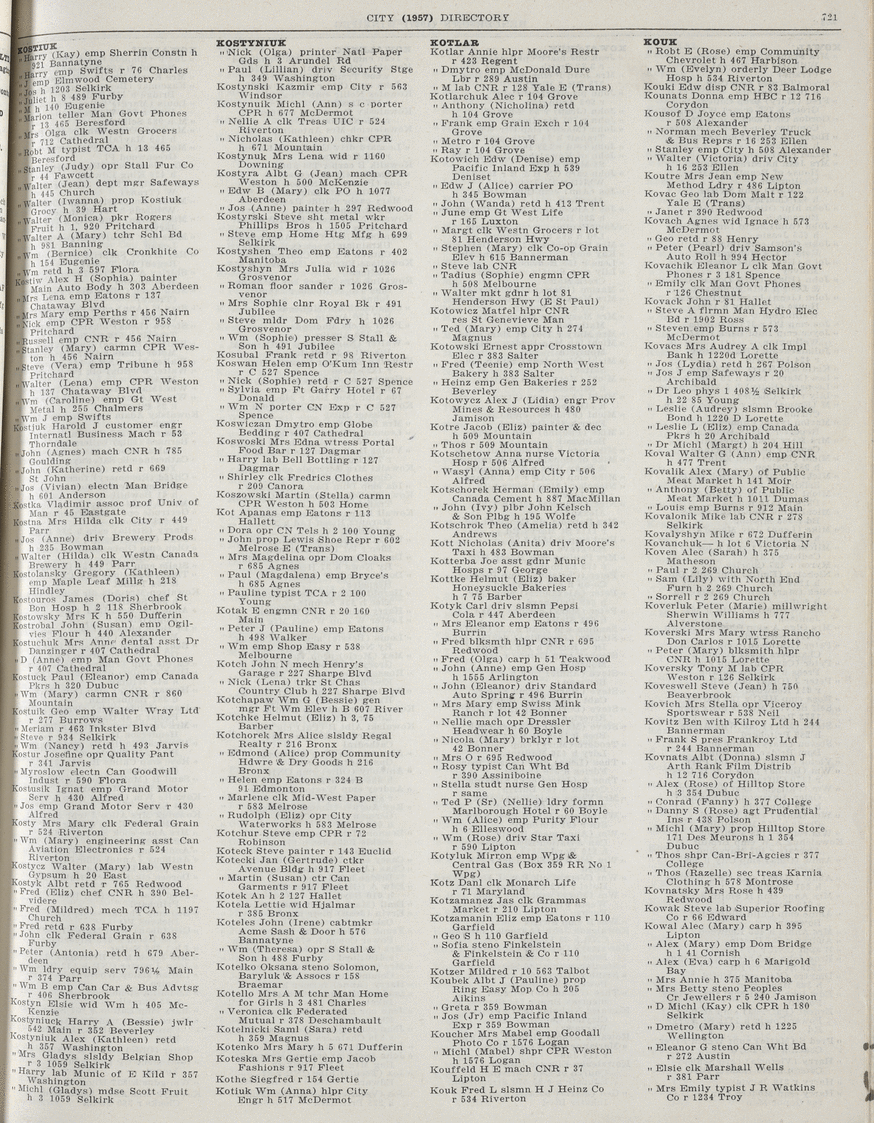 CITY (1957) DIRECTORY
721
KOSTIUK
" Harry (Kay) emp Sherrin Constn h
921 Bannatyne
" Harry emp Swifts r 76 Charles
" J emp Elmwood Cemetery
" Jos h 1203 Selkirk
" Juliet h 8 489 Furby
" M h 140 Eugenie
" Marion teller Man Govt Phones
r 13 465 Beresford
" Mrs Olga clk Westn Grocers
r 712 Cathedral
" Robt M typist TCA h 13 465
Beresford
" Stanley (Judy) opr Stall Fur Co
r 44 Fawcett
" Walter (Jean) dept mgr Safeways
h 445 Church
" Walter (Iwanna) prop Kostiuk
Grocy h 39 Hart
" Walter (Monica) pkr Rogers
Fruit h 1, 920 Pritchard
" Walter A (Mary) tchr Schl Bd
h 981 Banning
" Wm (Bernice) clk Cronkhite Co
h 154 Eugenie
" Wm retd h 3 597 Flora
Kostiw Alex H (Sophia) painter
Main Auto Body h 303 Aberdeen
" Mrs Lena emp Eatons r 137
Chataway Blvd
" Mrs Mary emp Perths r 456 Nairn
" Nick emp CPR Weston r 958
Pritchard
" Russell emp CNR r 456 Nairn
" Stanley (Mary) carmn CPR Wes-
ton h 456 Nairn
" Steve (Vera) emp Tribune h 958
Pritchard
" Walter (Lena) emp CPR Weston
h 137 Chataway Blvd
" Wm (Caroline) emp Gt West
Metal h 255 Chalmers
" Wm J emp Swifts
Kostjuk Harold J customer engr
Internatl Business Mach r 53
Thorndale
" John (Agnes) mach CNR h 785
Goulding
" John (Katherine) retd r 669
St John
" Jos (Vivian) electn Man Bridge
h 601 Anderson
Kostka Vladimir assoc prof Univ of
Man r 45 Eastgate
Kostna Mrs Hilda clk City r 449
Parr
" Jos (Anne) driv Brewery Prods
h 235 Bowman
" Walter (Hilda) clk Westn Canada
Brewery h 449 Parr
Kostolansky Gregory (Kathleen)
emp Maple Leaf Mills h 218
Hindley
Kostouros James (Doris) chef St
Bon Hosp h 2 118 Sherbrook
Kostowsky Mrs K h 550 Dufferin
Kostrobal John (Susan) emp Ogil-
vies Flour h 440 Alexander
Kostuchuk Mrs Anne dental asst Dr
Danzinger r 407 Cathedral
" D (Anne) emp Man Govt Phones
r 407 Cathedral
Kostuck Paul (Eleanor) emp Canada
Pkrs h 320 Dubuc
" Wm (Mary) carmn CNR r 860
Mountain
Kostuik Geo emp Walter Wray Ltd
r 277 Burrows
" Meriam r 463 Inkster Blvd
" Steve r 934 Selkirk
" Wm (Nancy) retd h 493 Jarvis
Kostur Josefine opr Quality Pant
r 341 Jarvis
" Myroslow electn Can Goodwill
Indust r 590 Flora
Kostusik Ignat emp Grand Motor
Serv h 430 Alfred
" Jos emp Grand Motor Serv r 430
Alfred
Kosty Mrs Mary clk Federal Grain
r 524 Riverton
" Wm (Mary) engineering asst Can
Aviation Electronics r 524
Riverton
Kostycz Walter (Mary) lab Westn
Gypsum h 20 East
Kostyk Albt retd r 765 Redwood
" Fred (Eliz) chef CNR h 390 Bel-
videre
" Fred (Mildred) mech TCA h 1197
Church
" Fred retd r 638 Furby
" John clk Federal Grain r 638
Furby
" Peter (Antonia) retd h 679 Aber-
deen
" Wm ldry equip serv 796½ Main
r 374 Parr
" Wm B emp Can Car & Bus Advtsg
r 406 Sherbrook
Kostyn Elsie wid Wm h 405 Mc-
Kenzie
Kostyniuck Harry A (Bessie) jwlr
542 Main r 352 Beverley
Kostyniuk Alex (Kathleen) retd
h 357 Washington
" Mrs Gladys slsldy Belgian Shop
r 3 1059 Selkirk
" Harry lab Munic of E Kild r 357
Washington
" Michl (Gladys) mdse Scott Fruit
h 3 1059 Selkirk
KOSTYNIUK
" Nick (Olga) printer Natl Paper
Gds h 3 Arundel Rd
" Paul (Lillian) driv Security Stge
h 349 Washington
Kostynski Kazmir emp City r 563
Windsor
Kostynuik Michl (Ann) s c porter
CPR h 677 McDermot
" Nellie A clk Treas UIC r 524
Riverton
" Nicholas (Kathleen) chkr CPR
h 671 Mountain
Kostynuk Mrs Lena wid r 1160
Downing
Kostyra Albt G (Jean) mach CPR
Weston h 500 McKenzie
" Edw B (Mary) clk PO h 1077
Aberdeen
" Jos (Anne) painter h 297 Redwood
Kostyrski Steve sht metal wkr
Phillips Bros h 1505 Pritchard
" Steve emp Home Htg Mfg h 699
Selkirk
Kostyshen Theo emp Eatons r 402
Manitoba
Kostyshyn Mrs Julia wid r 1026
Grosvenor
" Roman floor sander r 1026 Gros-
venor
" Mrs Sophie clnr Royal Bk r 491
Jubilee
" Steve mldr Dom Fdry h 1026
Grosvenor
" Wm (Sophie) presser S Stall &
Son h 491 Jubilee
Kosubal Frank retd r 98 Riverton
Koswan Helen emp O'Kum Inn Restr
r C 527 Spence
" Nick (Sophie) retd r C 527 Spence
" Sylvia emp Ft Garry Hotel r 67
Donald
" Wm N porter CN Exp r C 527
Spence
Koswiczan Dmytro emp Globe
Bedding r 407 Cathedral
Koswoski Mrs Edna wtress Portal
Food Bar r 127 Dagmar
" Harry lab Bell Bottling r 127
Dagmar
" Shirley clk Fredrics Clothes
r 209 Canora
Koszowski Martin (Stella) carmn
CPR Weston h 503 Home
Kot Apanas emp Eatons r 113
Hallett
" Dora opr CN Tels h 2 100 Young
" John prop Lewis Shoe Repr r 602
Melrose E (Trans)
" Mrs Magdelina opr Dom Cloaks
r 685 Agnes
" Paul (Magdalena) emp Bryce's
h 685 Agnes
" Pauline typist TCA r 2 100
Young
Kotak E engmn CNR r 20 160
Main
" Peter J (Pauline) emp Eatons
h 498 Walker
" Wm emp Shop Easy r 538
Melbourne
Kotch John N mech Henry's
Garage r 227 Sharpe Blvd
" Nick (Lena) trkr St Chas
Country Club h 227 Sharpe Blvd
Kotchapaw Wm G (Bessie) gen
mgr Ft Wm Elev h B 607 River
Kotchke Helmut (Eliz) h 3, 75
Barber
Kotchorek Mrs Alice slsldy Regal
Realty r 216 Bronx
" Edmond (Alice) prop Community
Hdwre & Dry Goods h 216
Bronx
" Helen emp Eatons r 324 B
91 Edmonton
" Marlene clk Mid-West Paper
r 583 Melrose
" Rudolph (Eliz) opr City
Waterworks h 583 Melrose
Kotchur Steve emp CPR r 72
Robinson
Koteck Steve painter r 143 Euclid
Kotecki Jan (Gertrude) ctkr
Avenue Bldg h 917 Fleet
" Martin (Susan) ctr Can
Garments r 917 Fleet
Kotek An h 2 127 Hallet
Kotela Lettie wid Hjalmar
r 385 Bronx
Koteles John (Irene) cabtmkr
Acme Sash & Door h 576
Bannatyne
" Wm (Theresa) opr S Stall &
Son h 488 Furby
Kotelko Oksana steno Solomon,
Baryluk & Assocs r 158
Braemar
Kotello Mrs A M tchr Man Home
for Girls h 3 481 Charles
" Veronica clk Federated
Mutual r 378 Deschambault
Kotelnicki Saml (Sara) retd
h 359 Magnus
Kotenko Mrs Mary h 5 671 Dufferin
Koteska Mrs Gertie emp Jacob
Fashions r 917 Fleet
Kothe Siegfred r 154 Gertie
Kotiuk Wm (Anna) hlpr City
Engr h 517 McDermot
KOTLAR
Kotlar Annie hlpr Moore's Restr
r 423 Regent
" Dmytro emp McDonald Dure
Lbr r 289 Austin
" M lab CNR r 128 Yale E (Trans)
Kotlarchuk Alec r 104 Grove
" Anthony (Nicholina) retd
h 104 Grove
" Frank emp Grain Exch r 104
Grove
" Metro r 104 Grove
" Ray r 104 Grove
Kotowich Edw (Denise) emp
Pacific Inland Exp h 539
Deniset
" Edw J (Alice) carrier PO
h 345 Bowman
" John (Wanda) retd h 413 Trent
" June emp Gt West Life
r 165 Luxton
" Margt clk Westn Grocers r lot
81 Henderson Hwy
" Stephen (Mary) clk Co-op Grain
Elev h 615 Bannerman
" Steve lab CNR
" Tadius (Sophie) engmn CPR
h 508 Melbourne
" Walter mkt gdnr h lot 81
Henderson Hwy (E St Paul)
Kotowicz Matfel hlpr CNR
res St Genevieve Man
" Ted (Mary) emp City h 274
Magnus
Kotowski Ernest appr Crosstown
Elec r 383 Salter
" Fred (Teenie) emp North West
Bakery h 383 Salter
" Heinz emp Gen Bakeries r 252
Beverley
Kotowycz Alex J (Lidia) engr Prov
Mines & Resources h 480
Jamison
Kotre Jacob (Eliz) painter & dec
h 509 Mountain
" Thos r 509 Mountain
Kotschetow Anna nurse Victoria
Hosp r 506 Alfred
" Wasyl (Anna) emp City r 506
Alfred
Kotschorek Herman (Emily) emp
Canada Cement h 887 MacMillan
" John (Ivy) plbr John Kelsch
& Son Plbg h 195 Wolfe
Kotschrok Theo (Amelia) retd h 342
Andrews
Kott Nicholas (Anita) driv Moore's
Taxi h 483 Bowman
Kotterba Joe asst gdnr Munic
Hosps r 97 George
Kottke Helmut (Eliz) baker
Honeysuckle Bakeries
h 7 75 Barber
Kotyk Carl driv slsmn Pepsi
Cola r 447 Aberdeen
" Mrs Eleanor emp Eatons r 496
Burrin
" Fred blksmth hlpr CNR r 695
Redwood
" Fred (Olga) carp h 51 Teakwood
" John (Anne) emp Gen Hosp
h 1555 Arlington
" John (Eleanor) driv Standard
Auto Spring r 496 Burrin
" Mrs Mary emp Swiss Mink
Ranch r lot 42 Bonner
" Nellie mach opr Dressler
Headwear h 60 Boyle
" Nicola (Mary) brklyr r lot
42 Bonner
" Mrs O r 695 Redwood
" Rosy typist Can Wht Bd
r 390 Assiniboine
" Stella studt nurse Gen Hosp
r same
" Ted P (Sr) (Nellie) ldry formn
Marlborough Hotel r 60 Boyle
" Wm (Alice) emp Purity Flour
h 6 Elleswood
" Wm (Rose) driv Star Taxi
r 590 Lipton
Kotyluk Mirron emp Wpg &
Central Gas (Box 359 RR No 1
Wpg)
Kotz Danl clk Monarch Life
r 71 Maryland
Kotzamanez Jas clk Grammas
Market r 210 Lipton
Kotzamanin Eliz emp Eatons r 110
Garfield
" Geo S h 110 Garfield
" Sofia steno Finkelstein
& Finkelstein & Co r 110
Garfield
Kotzer Mildred r 10 563 Talbot
Koubek Albt J (Pauline) prop
Ring Easy Mop Co h 205
Aikins
" Greta r 359 Bowman
" Jos (Jr) emp Pacific Inland
Exp r 359 Bowman
Koucher Mrs Mabel emp Goodall
Photo Co r 1576 Logan
" Michl (Mabel) shpr CPR Weston
h 1576 Logan
Kouffeld H E mach CNR r 37
Lipton
Kouk Fred L slsmn H J Heinz Co
r 534 Riverton
KOUK
" Robt E (Rose) emp Community
Chevrolet h 467 Harbison
" Wm (Evelyn) orderly Deer Lodge
Hosp h 534 Riverton
Kouki Edw disp CNR r 83 Balmoral
Kounats Donna emp HBC r 12 716
Corydon
Kousof D Joyce emp Eatons
r 508 Alexander
" Norman mech Beverley Truck
& Bus Reprs r 16 253 Ellen
" Stanley emp City h 508 Alexander
" Walter (Victoria) driv City
h 16 253 Ellen
Koutre Mrs Jean emp New
Method Ldry r 486 Lipton
Kovac Geo lab Dom Malt r 122
Yale E (Trans)
" Janet r 390 Redwood
Kovach Agnes wid Ignace h 573
McDermot
" Geo retd r 88 Henry
" Peter (Pearl) driv Samson's
Auto Roll h 994 Hector
Kovachik Eleanor L clk Man Govt
Phones r 3 181 Spence
" Emily clk Man Govt Phones
r 126 Chestnut
Kovack John r 81 Hallet
" Steve A firmn Man Hydro Elec
Bd r 1902 Ross
" Steven emp Burns r 573
McDermot
Kovacs Mrs Audrey A clk Impl
Bank h 1220d Lorette
" Jos (Lydia) retd h 267 Polson
" Jos J emp Safeways r 20
Archibald
" Dr Leo phys 1 408½ Selkirk
h 22 85 Young
" Leslie (Audrey) slsmn Brooke
Bond h 1220 D Lorette
" Leslie L (Eliz) emp Canada
Pkrs h 20 Archibald
" Dr Michl (Margt) h 204 Hill
Koval Walter G (Ann) emp CNR
h 477 Trent
Kovalik Alex (Mary) of Public
Meat Market h 141 Moir
" Anthony (Betty) of Public
Meat Market h 1011 Dumas
" Louis emp Burns r 912 Main
Kovalonik Mike lab CNR r 278
Selkirk
Kovalyshyn Mike r 672 Dufferin
Kovanchuk— h lot 6 Victoria N
Koven Alec (Sarah) h 375
Matheson
" Paul r 2 269 Church
" Sam (Lily) with North End
Furn h 2 269 Church
" Sorrell r 2 269 Church
Koverluk Peter (Marie) millwright
Sherwin Williams h 777
Alverstone
Koverski Mrs Mary wtrss Rancho
Don Carlos r 1015 Lorette
" Peter (Mary) blksmith hlpr
CNR h 1015 Lorette
Koversky Tony M lab CPR
Weston r 126 Selkirk
Koveswell Steve (Jean) h 750
Beaverbrook
Kovich Mrs Stella opr Viceroy
Sportswear r 538 Neil
Kovitz Ben with Kilroy Ltd h 244
Bannerman
" Frank S pres Frankroy Ltd
r 244 Bannerman
Kovnats Albt (Donna) slsmn J
Arth Rank Film Distrib
h 12 716 Corydon
" Alex (Rose) of Hilltop Store
h 3 354 Dubuc
" Conrad (Fanny) h 377 College
" Danny S (Rose) agt Prudential
Ins r 438 Polson
" Michl (Mary) prop Hilltop Store
171 Des Meurons h 1 354
Dubuc
" Thos shpr Can-Bri-Agcies r 377
College
" Thos (Razelle) sec treas Karnia
Clothing h 578 Montrose
Kovnatsky Mrs Rose h 439
Redwood
Kowak Steve lab Superior Roofing
Co r 66 Edward
Kowal Alec (Mary) carp h 395
Lipton
" Alex (Mary) emp Dom Bridge
h 1 41 Cornish
" Alex (Eva) carp h 6 Marigold
Bay
" Mrs Annie h 375 Manitoba
" Mrs Betty steno Peoples
Cr Jewellers r 5 240 Jamison
" D Michl (Kay) clk CPR h 180
Selkirk
" Dmetro (Mary) retd h 1225
Wellington
" Eleanor G steno Can Wht Bd
r 272 Austin
" Elsie clk Marshall Wells
r 381 Parr
" Mrs Emily typist J R Watkins
Co r 1234 Troy